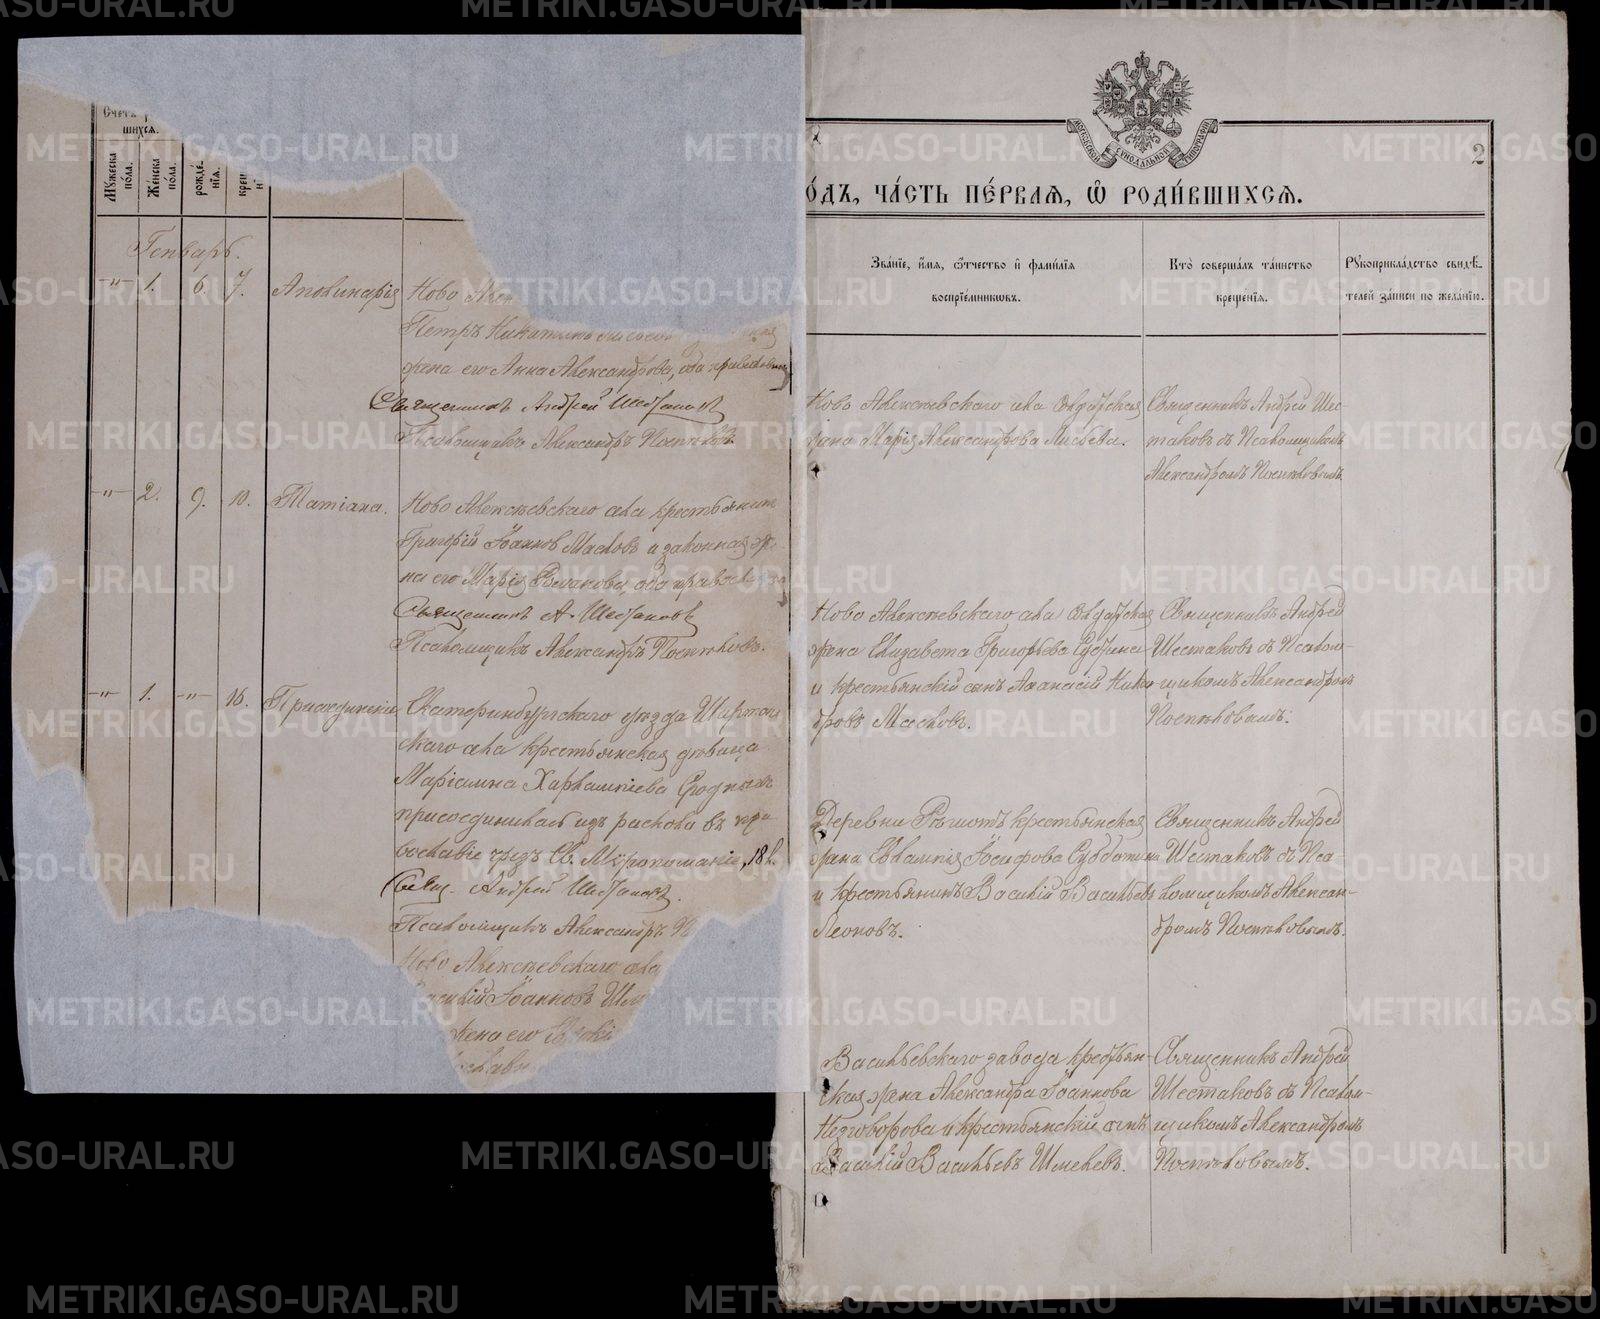 Счетъ
шихся.
Мужеска пола.
Женска пола.
рожде-
нія.
крещ
Генварь.
-"- 1. 6. 7. Аполинарія Ново
Петръ Никитинъ
жена его Анна Александрова, оба православн
Священникъ Андрей Шестаковъ
Псаломщикъ Александръ Поспѣловъ
-"- 2. 9. 10. Татіана. Ново Алексѣевскаго села крестьянинъ
Григорій Іоанновъ Масловъ и законная же-
на его Марія
Священникъ А. Шестаковъ
Псаломщикъ Александръ Поспѣловъ.
-"- 1. -"- 16. Екатеринбургскаго уѣзда Шарташ
скаго села крестьянская дѣвица
Маріамна Харлампіева
присоединилась изъ раскола въ пра
вославіе чрезъ Св. Мѵропомазаніе, 18 л.
Свящ. Андрей Шестаковъ.
Псаломщикъ Александръ П
Ново Алексѣевскаго села
силій Іоанновъ
жена его
ославн
2
МОСКОВСКОЙ СѴНОДАЛЬНОЙ ТИПОГРАФІИ
одъ, часть пе́рвая, ѽ роди́вшихся.
Зва́ніе, и́мя, ѻ҆́тчество и҆ фами́лія
воспріе́мниковъ.
Кто̀ соверша́лъ та́инство
креще́нія.
Рукоприкла́дство свидѣ́-
телей за́писи по жела́нію.
Ново Алексѣевскаго села солдатская
жена Марія Александрова Лисьева.
Священникъ Андрей Шес-
таковъ съ Псаломщикомъ
Александромъ Поспѣловымъ.
Ново Алексѣевскаго села солдатская
жена Елизавета Григорьева
и крестьянскій сынъ Аѳанасій Никан-
дровъ Масловъ.
Священникъ Андрей
Шестаковъ съ Псалом-
щикомъ Александромъ
Поспѣловымъ.
Деревни Рѣшотъ крестьянская
жена Евлампія Іосафова Субботина
и крестьянинъ Василій Васильевъ
Леоновъ.
Священникъ Андрей
Шестаковъ съ Пса-
ломщикомъ Алексан-
дромъ Поспѣловымъ.
Васильевскаго завода крестьян-
ская жена Александра Іоаннова
Незговорова и крестьянскій сынъ
Василій Васильевъ Шмелевъ.
Священникъ Андрей
Шестаковъ съ Псалом-
щикомъ Александромъ
Поспѣловымъ.
METRIKI.GASO-URAL.RU